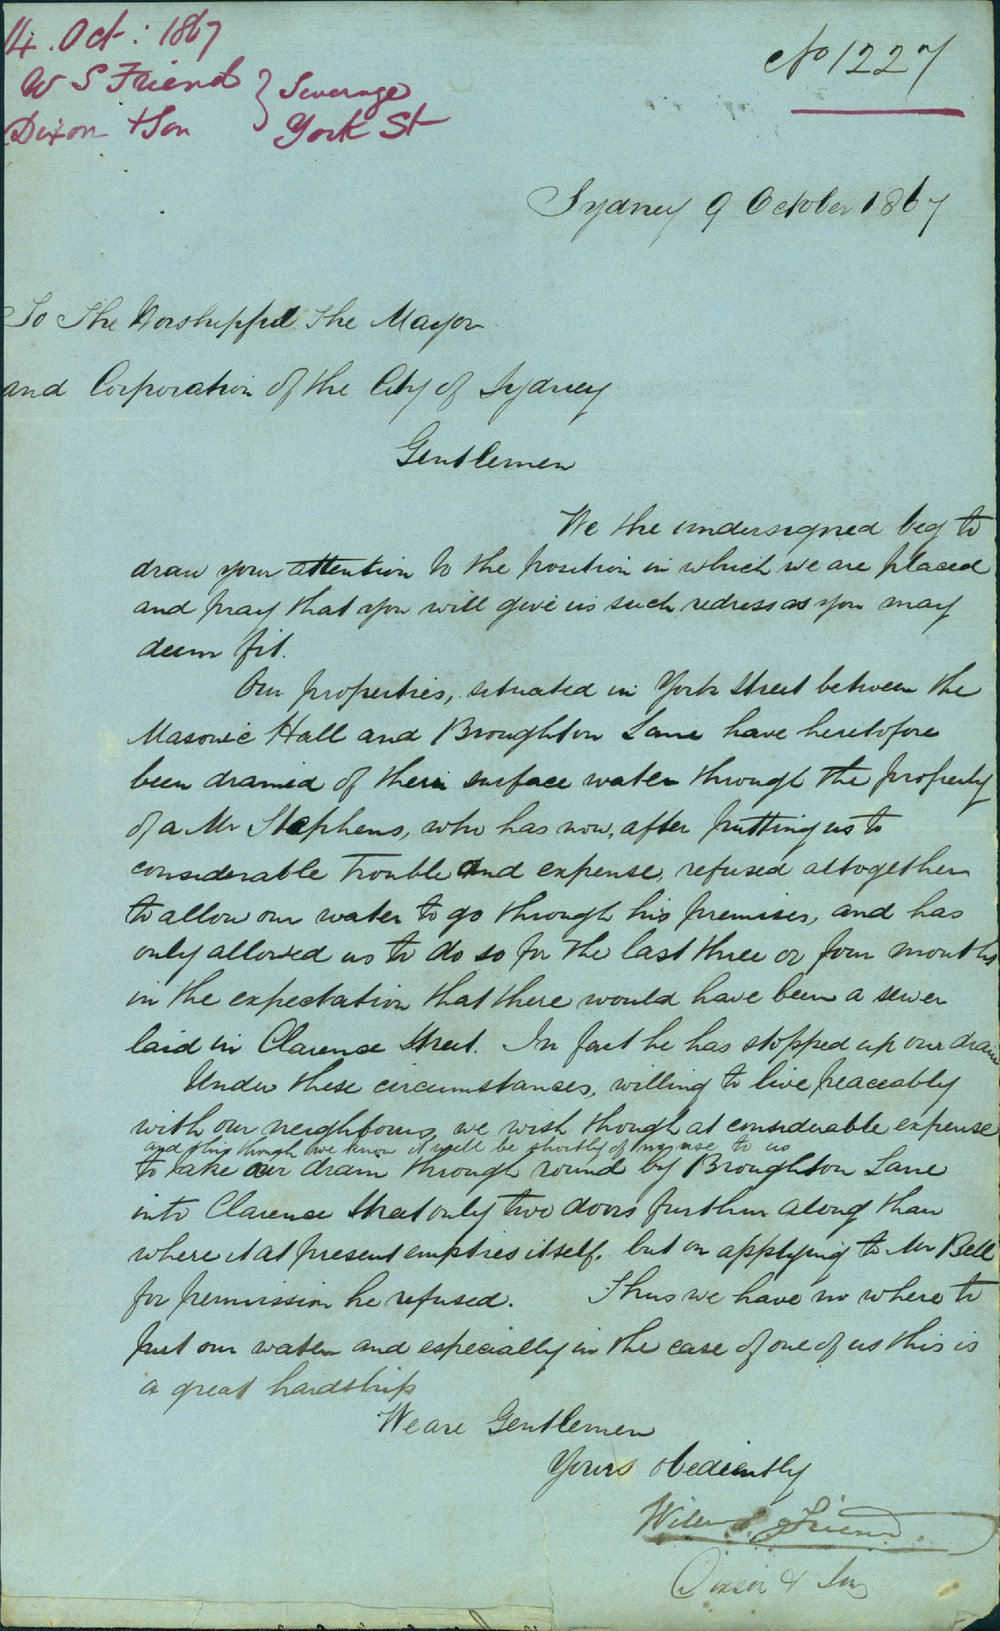 14. Oct: 1867
W S Friend } Sewerage
Dixon & Son York St
No 1227
Sydney 9 October 1867
To The Worshipful The Mayor
and Corporation of the City of Sydney
Gentlemen
We the undersigned beg to
draw your attention to the position in which we are placed
and pray that you will give us such redress as you may
deem fit.
Our properties, situated in York Street between the
Masonic Hall and Broughton Lane have heretofore
been drained of their surface water through the property
of a Mr Stephens, who has now, after putting us to
considerable trouble and expense, refused altogether
to allow our water to go through his premises, and has
only allowed us to do so for the last three or four months
in the expectation that there would have been a sewer
laid in Clarence Street. In fact he has stopped up our drain
Under these circumstances, willing to live peaceably
with our neighbours, we wish though at considerable expense
and this though we know it will be shortly of no use to us
to take our drain through round by Broughton Lane
into Clarence Street only two doors further along than
where it at present empties itself. but on applying to Mr Bell
for permission he refused. Thus we have no where to
put our water and especially in the case of one of us this is
a great hardship
We are Gentlemen
Yours obediently
Willm S. Friend
Dixson & Son